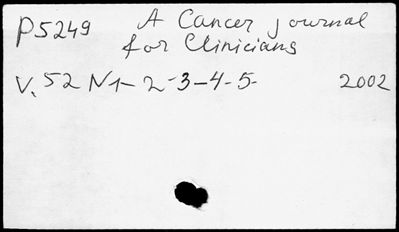 P5249 A Cancer journal
for Clinicians
V. 52 N1-2-3-4-5- 2002